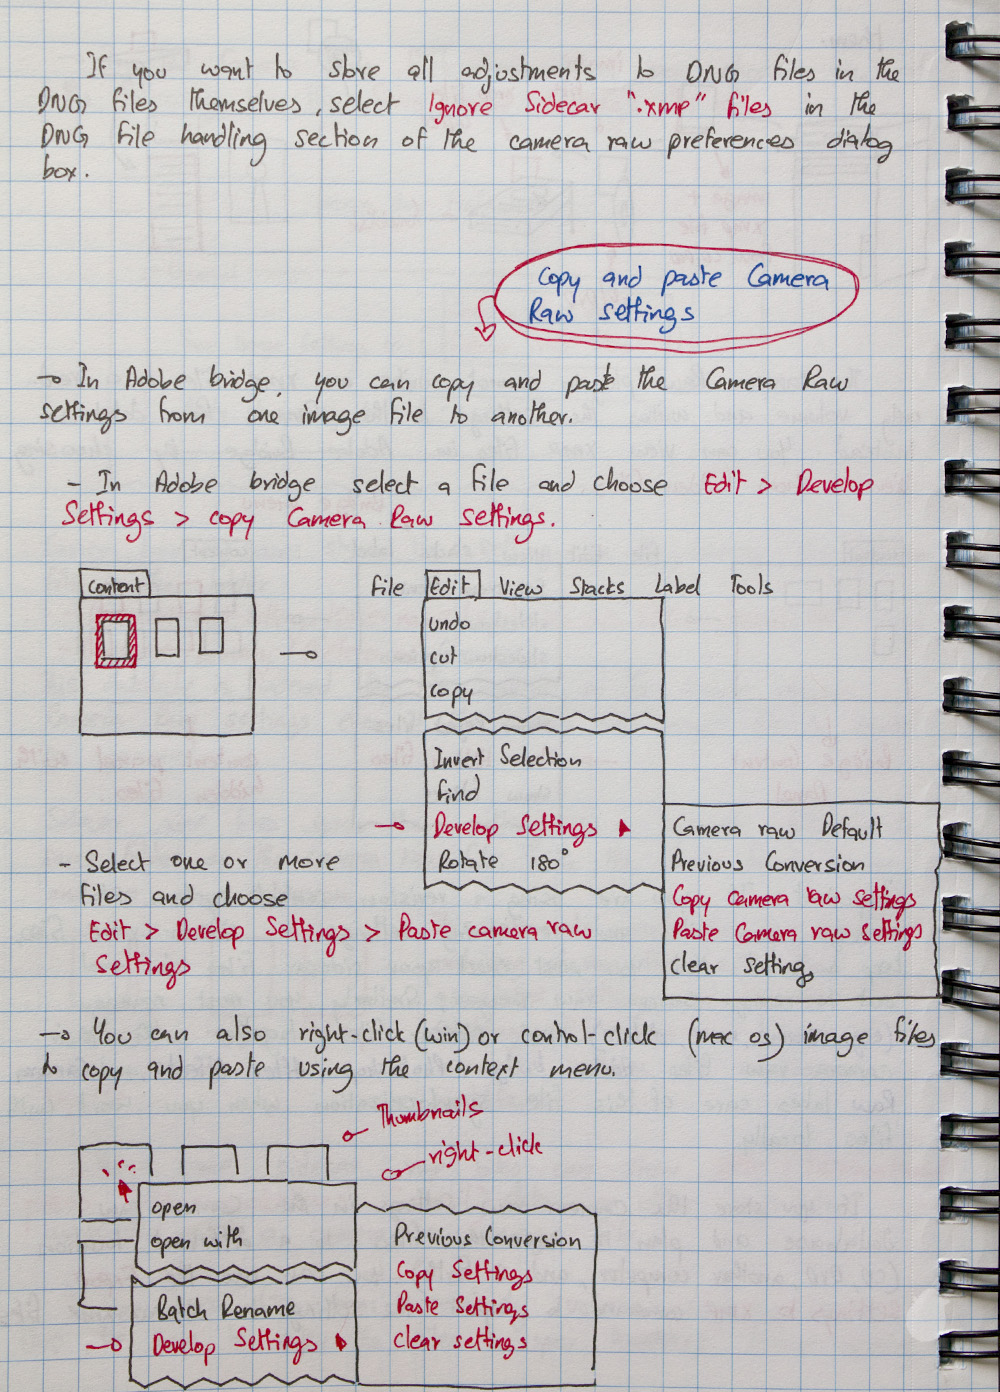 If you want to store all adjustments to DNG files in the
DNG files themselves, select Ignore Sidecar ".xmp" files in the
DNG file handling section of the camera raw preferences dialog
box.
Copy and paste Camera
Raw settings
→ In Adobe bridge, you can copy and paste the Camera Raw
settings from one image file to another.
- In Adobe bridge select a file and choose Edit > Develop
Settings > copy Camera Raw settings.
Content
File Edit View Stacks Label Tools
undo
cut
copy
Invert Selection
find
Develop Settings ▸
Rotate 180°
Camera raw Default
Previous Conversion
Copy camera raw settings
Paste Camera raw settings
clear settings
- Select one or more
files and choose
Edit > Develop Settings > Paste camera raw
settings
→ You can also right-click (win) or control-click (mac os) image files
to copy and paste using the context menu.
Thumbnails
right-click
open
open with
Batch Rename
Develop Settings ▸
Previous Conversion
Copy Settings
Paste Settings
Clear settings